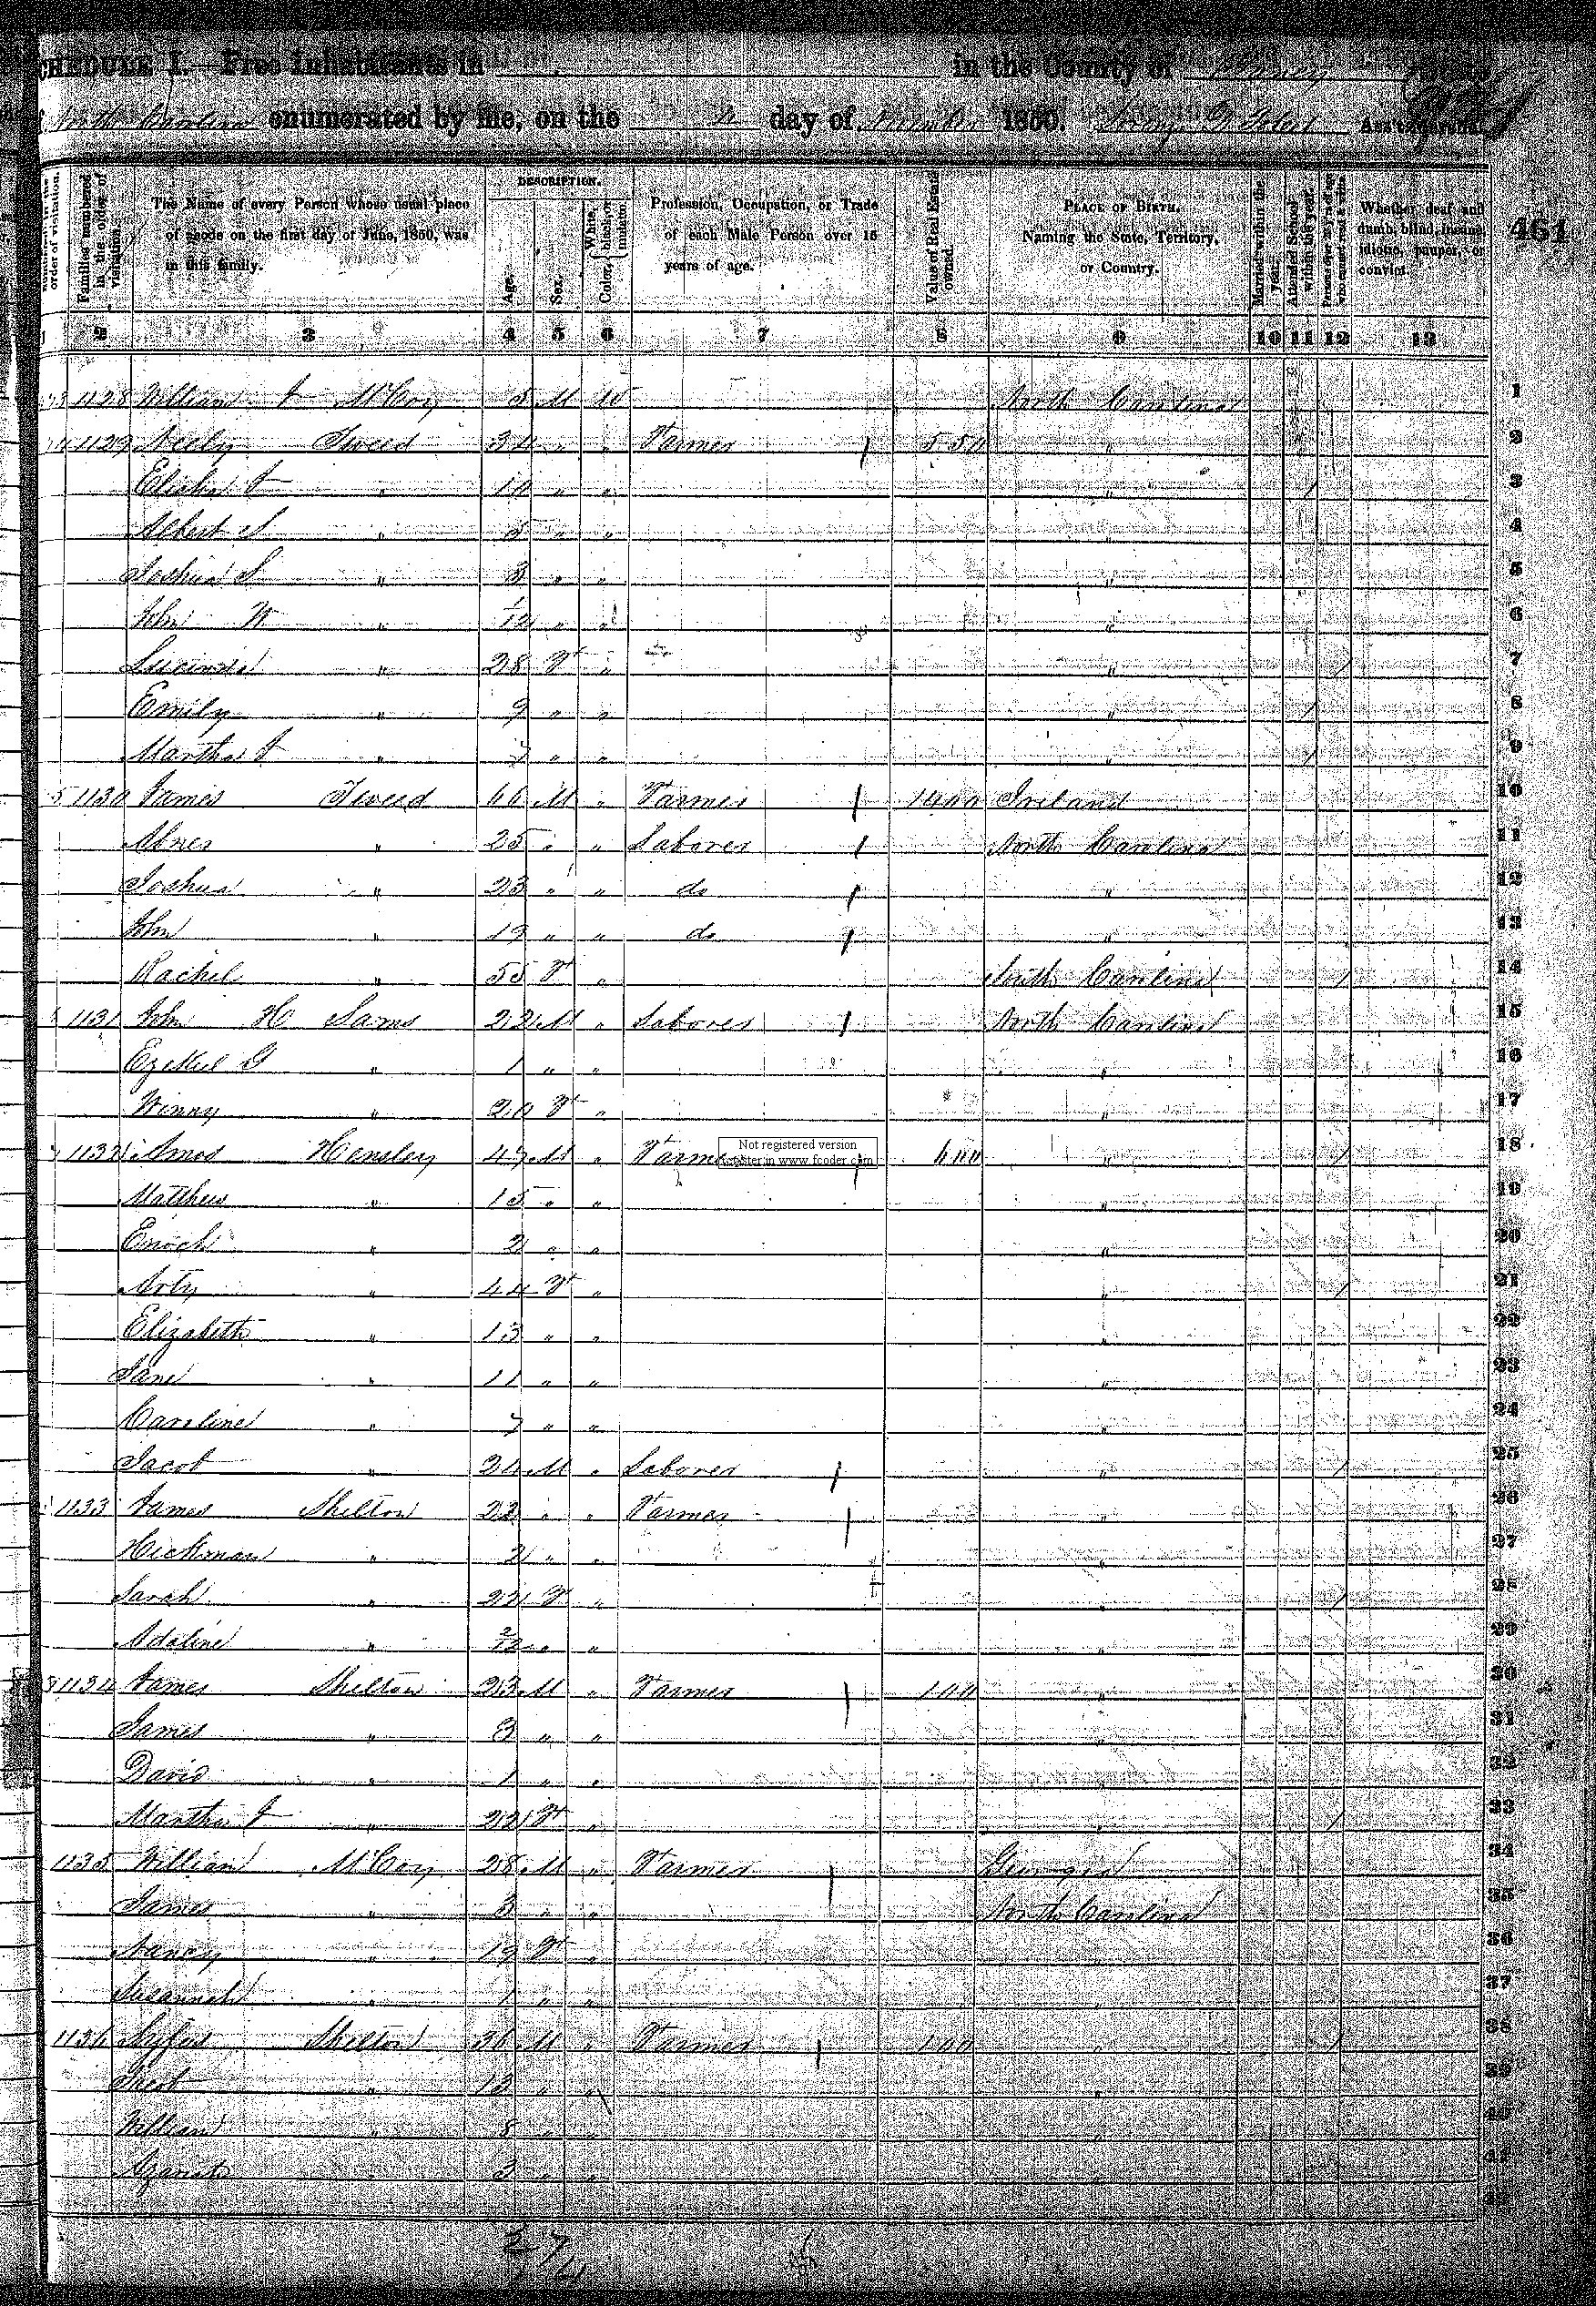 CHEDULE I.—Free Inhabitants in in the County of Yancey State
North Carolina enumerated by me, on the 4 day of November 1850. Ass't Marshal.
DESCRIPTION.
order of visitation.
Families numbered in the order of visitation.
The Name of every Person whose usual place of abode on the first day of June, 1850, was in this family.
Age.
Sex.
Color, { White, black, or mulatto.
Profession, Occupation, or Trade of each Male Person over 15 years of age.
Value of Real Estate owned.
PLACE OF BIRTH. Naming the State, Territory, or Country.
Married within the year.
Attended School within the year.
Persons over 20 y'rs of age who cannot read & write.
Whether deaf and dumb, blind, insane, idiotic, pauper, or convict.
461
1 2 3 4 5 6 7 8 9 10 11 12 13
1128 William J McCoy 5 M W North Carolina 1
1129 Neely Tweed 34 " " Farmer 550 " 2
Elisha J " 10 " " " 3
Albert S " 5 " " " 4
Joshua S " 3 " " " 5
John W " 1/12 " " " 6
Lucinda " 28 F " " / 7
Emily " 9 " " " / 8
Martha J " 7 " " " / 9
1130 James Tweed 66 M " Farmer 1400 Ireland 10
Abner " 25 " " Laborer North Carolina 11
Joshua " 23 " " do " 12
John " 19 " " do " 13
Rachel " 55 F " South Carolina / 14
1131 John H Sams 22 M " Laborer North Carolina 15
Ezekiel G " 1 " " " 16
Winny " 20 F " " 17
1132 Amos Hensley 47 M " Farmer 600 " / 18
Not registered version
register in www.fcoder.com
Matthew " 15 " " 19
Enoch " 2 " " " 20
Arty " 44 F " " / 21
Elizabeth " 13 " " " 22
Jane " 11 " " " 23
Caroline " 7 " " " 24
Jacob " 24 M " Laborer " / 25
1133 James Shelton 22 " " Farmer " 26
Hickman " 2 " " " 27
Sarah " 22 F " " / 28
Adaline " 2/12 " " " 29
1134 James Shelton 23 M " Farmer 100 " 30
James " 3 " " " 31
David " 1 " " " 32
Martha J " 22 F " " / 33
1135 William McCoy 28 M " Farmer Georgia 34
James " 3 " " North Carolina 35
Nancy " 19 F " " 36
Susannah " 1 " " " 37
1136 Shelton 36 M " Farmer 100 " / 38
" 13 " " " 39
William " 8 " " " 40
" 3 " " " 41
42